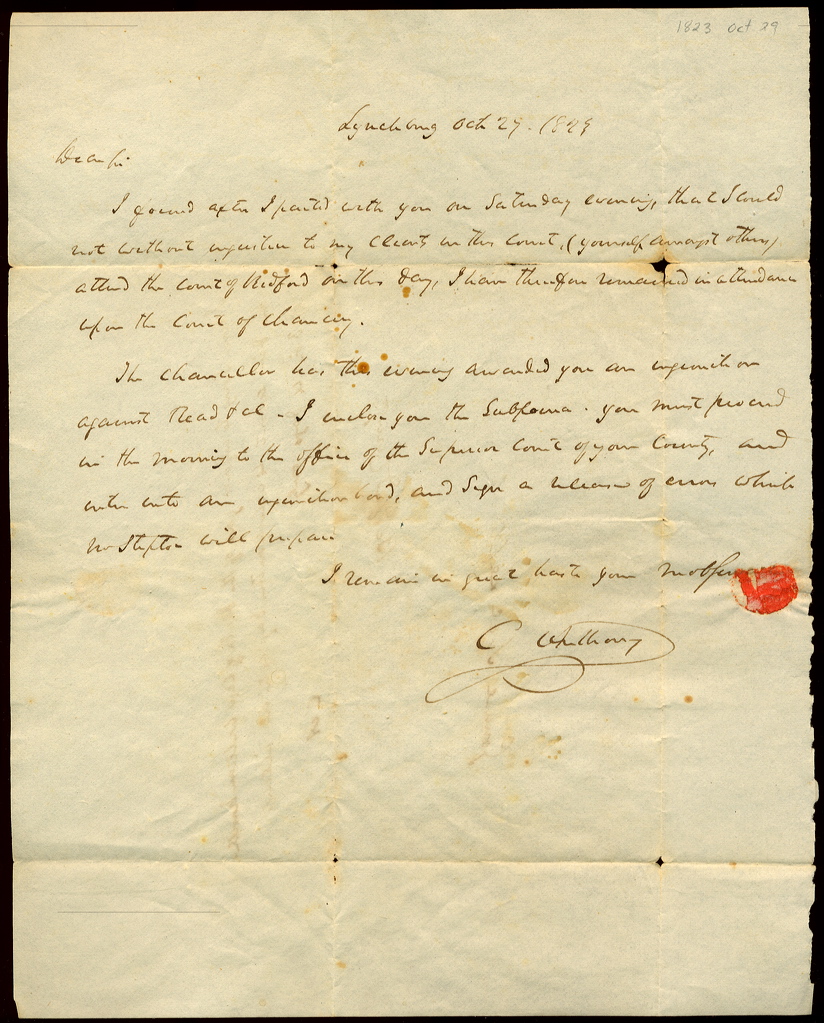 1823 Oct 29
Lynchburg Oct 27. 1823
Dear Sir
I found after I parted with you on Saturday evening, that I could
not without injustice to my Clients in this Court, (yourself amongst others)
attend the Court of Bedford on this day, I have therefore remained in attendance
upon the Court of Chancery.
The Chancellor has this evening awarded you an injunction
against Read & al - I enclose you the Subpoena. you must proceed
in the morning to the office of the Superior Court of your County, and
enter into an injunction bond, and Sign a release of errors which
Mr Steptoe will prepare
I remain in great haste your
C Anthony